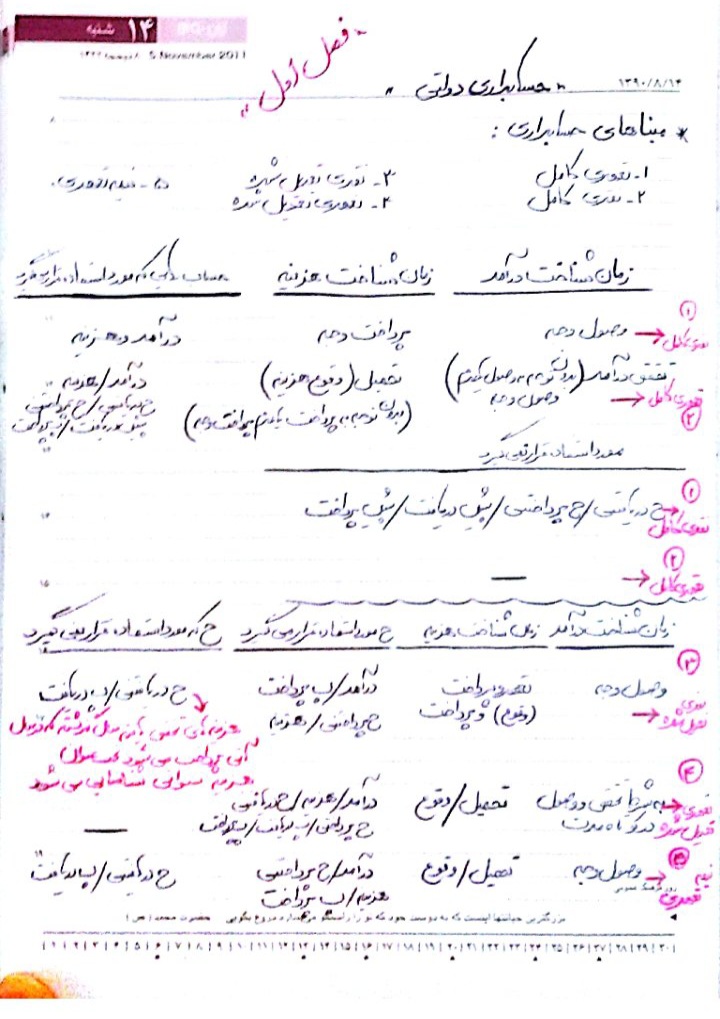 ۱۴ شنبه
5 November 2011
« فصل اول »
۱۳۹۰/۸/۱۴
« حسابداری دولتی »
* مبناهای حسابداری :
۱- تعهدی کامل ۳- نقدی تعدیل شده ۵- نیمه تعهدی.
۲- نقدی کامل ۴- تعهدی تعدیل شده
زمان شناخت درآمد زمان شناخت هزینه حساب هایی که مورد استفاده قرار می گیرد
۱ نقدی کامل → وصول وجه پرداخت وجه درآمد و هزینه
تحقق درآمد (بدون توجه به وصول یا عدم تحمیل (وقوع هزینه) درآمد/هزینه
۲ تعهدی کامل → وصول وجه) (بدون توجه به پرداخت یا عدم پرداخت وجه) ح دریافتنی/ح پرداختنی
پیش دریافت/پ پرداخت
مورد استفاده قرار نمی گیرد
۱ نقدی کامل → ح دریافتنی/ح پرداختنی/پیش دریافت/پیش پرداخت
۲ تعهدی کامل → —
زمان شناخت درآمد زمان شناخت هزینه ح مورد استفاده قرار می گیرد ح که مورد استفاده قرار نمی گیرد
۳ نقدی تعدیل شده → وصول وجه تعهد و پرداخت درآمد/پ پرداخت ح دریافتنی/پ دریافت
(وقوع) و پرداخت ح پرداختنی/هزینه
هزینه های
پرداخت می شود
هزینه شناسایی می شود
۴ تعهدی تعدیل شده → به شرط تحقق و وصول تحمیل/وقوع درآمد/هزینه/ح دریافتنی
در کوتاه مدت ح پرداختنی/پ دریافت/پ پرداخت —
۵ نیمه تعهدی → وصول وجه تحمیل/وقوع درآمد/ح پرداختنی ح دریافتنی/پ دریافت
هزینه/پ پرداخت
روز فرهنگ عمومی
حضرت محمد (ص)
۱ | ۲ | ۳ | ۴ | ۵ | ۶ | ۷ | ۸ | ۹ | ۱۰ | ۱۱ | ۱۲ | ۱۳ | ۱۴ | ۱۵ | ۱۶ | ۱۷ | ۱۸ | ۱۹ | ۲۰ | ۲۱ | ۲۲ | ۲۳ | ۲۴ | ۲۵ | ۲۶ | ۲۷ | ۲۸ | ۲۹ | ۳۰